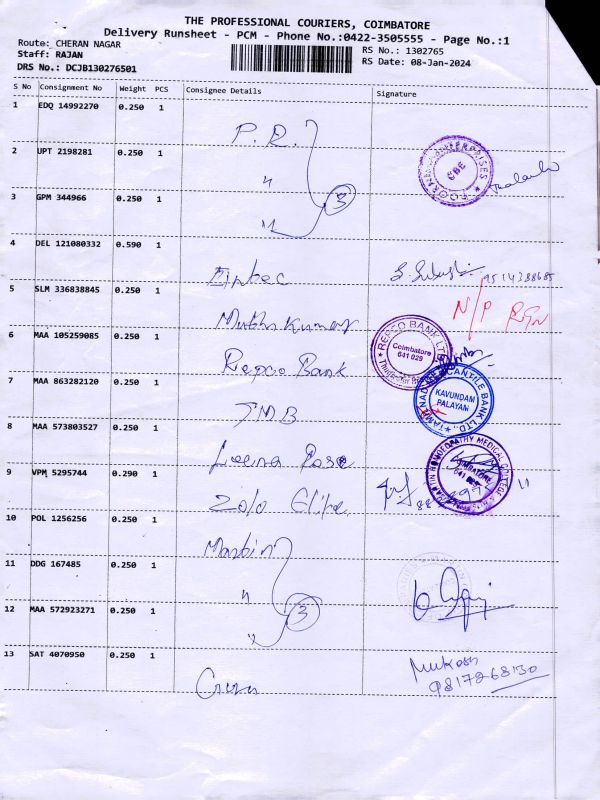 THE PROFESSIONAL COURIERS, COIMBATORE
Delivery Runsheet - PCM - Phone No.:0422-3505555 - Page No.:1
Route: CHERAN NAGAR
RS No.: 1302765
Staff: RAJAN
RS Date: 08-Jan-2024
DRS No.: DCJB130276501
S No Consignment No Weight PCS Consignee Details Signature
1 EDQ 14992270 0.250 1
P. R.
2 UPT 2198281 0.250 1
"
3 GPM 344966 0.250 1
" 3
4 DEL 121080332 0.590 1
9514388685
5 SLM 336838845 0.250 1
Muthu Kumar N/P
6 MAA 105259085 0.250 1
Repco Bank
REPCO BANK LTD
Coimbatore
641 029
7 MAA 863282120 0.250 1
TMB
TAMILNAD MERCANTILE BANK LTD.,
KAVUNDAM
PALAYAM
8 MAA 573803527 0.250 1
Leena Rose
MARTIN HOMOEOPATHY MEDICAL COLLEGE
9 VPM 5295744 0.290 1
10 POL 1256256 0.250 1
Martin
11 DDG 167485 0.250 1
"
12 MAA 572923271 0.250 1
" 3
13 SAT 4070950 0.250 1
Mukesh
9817268130